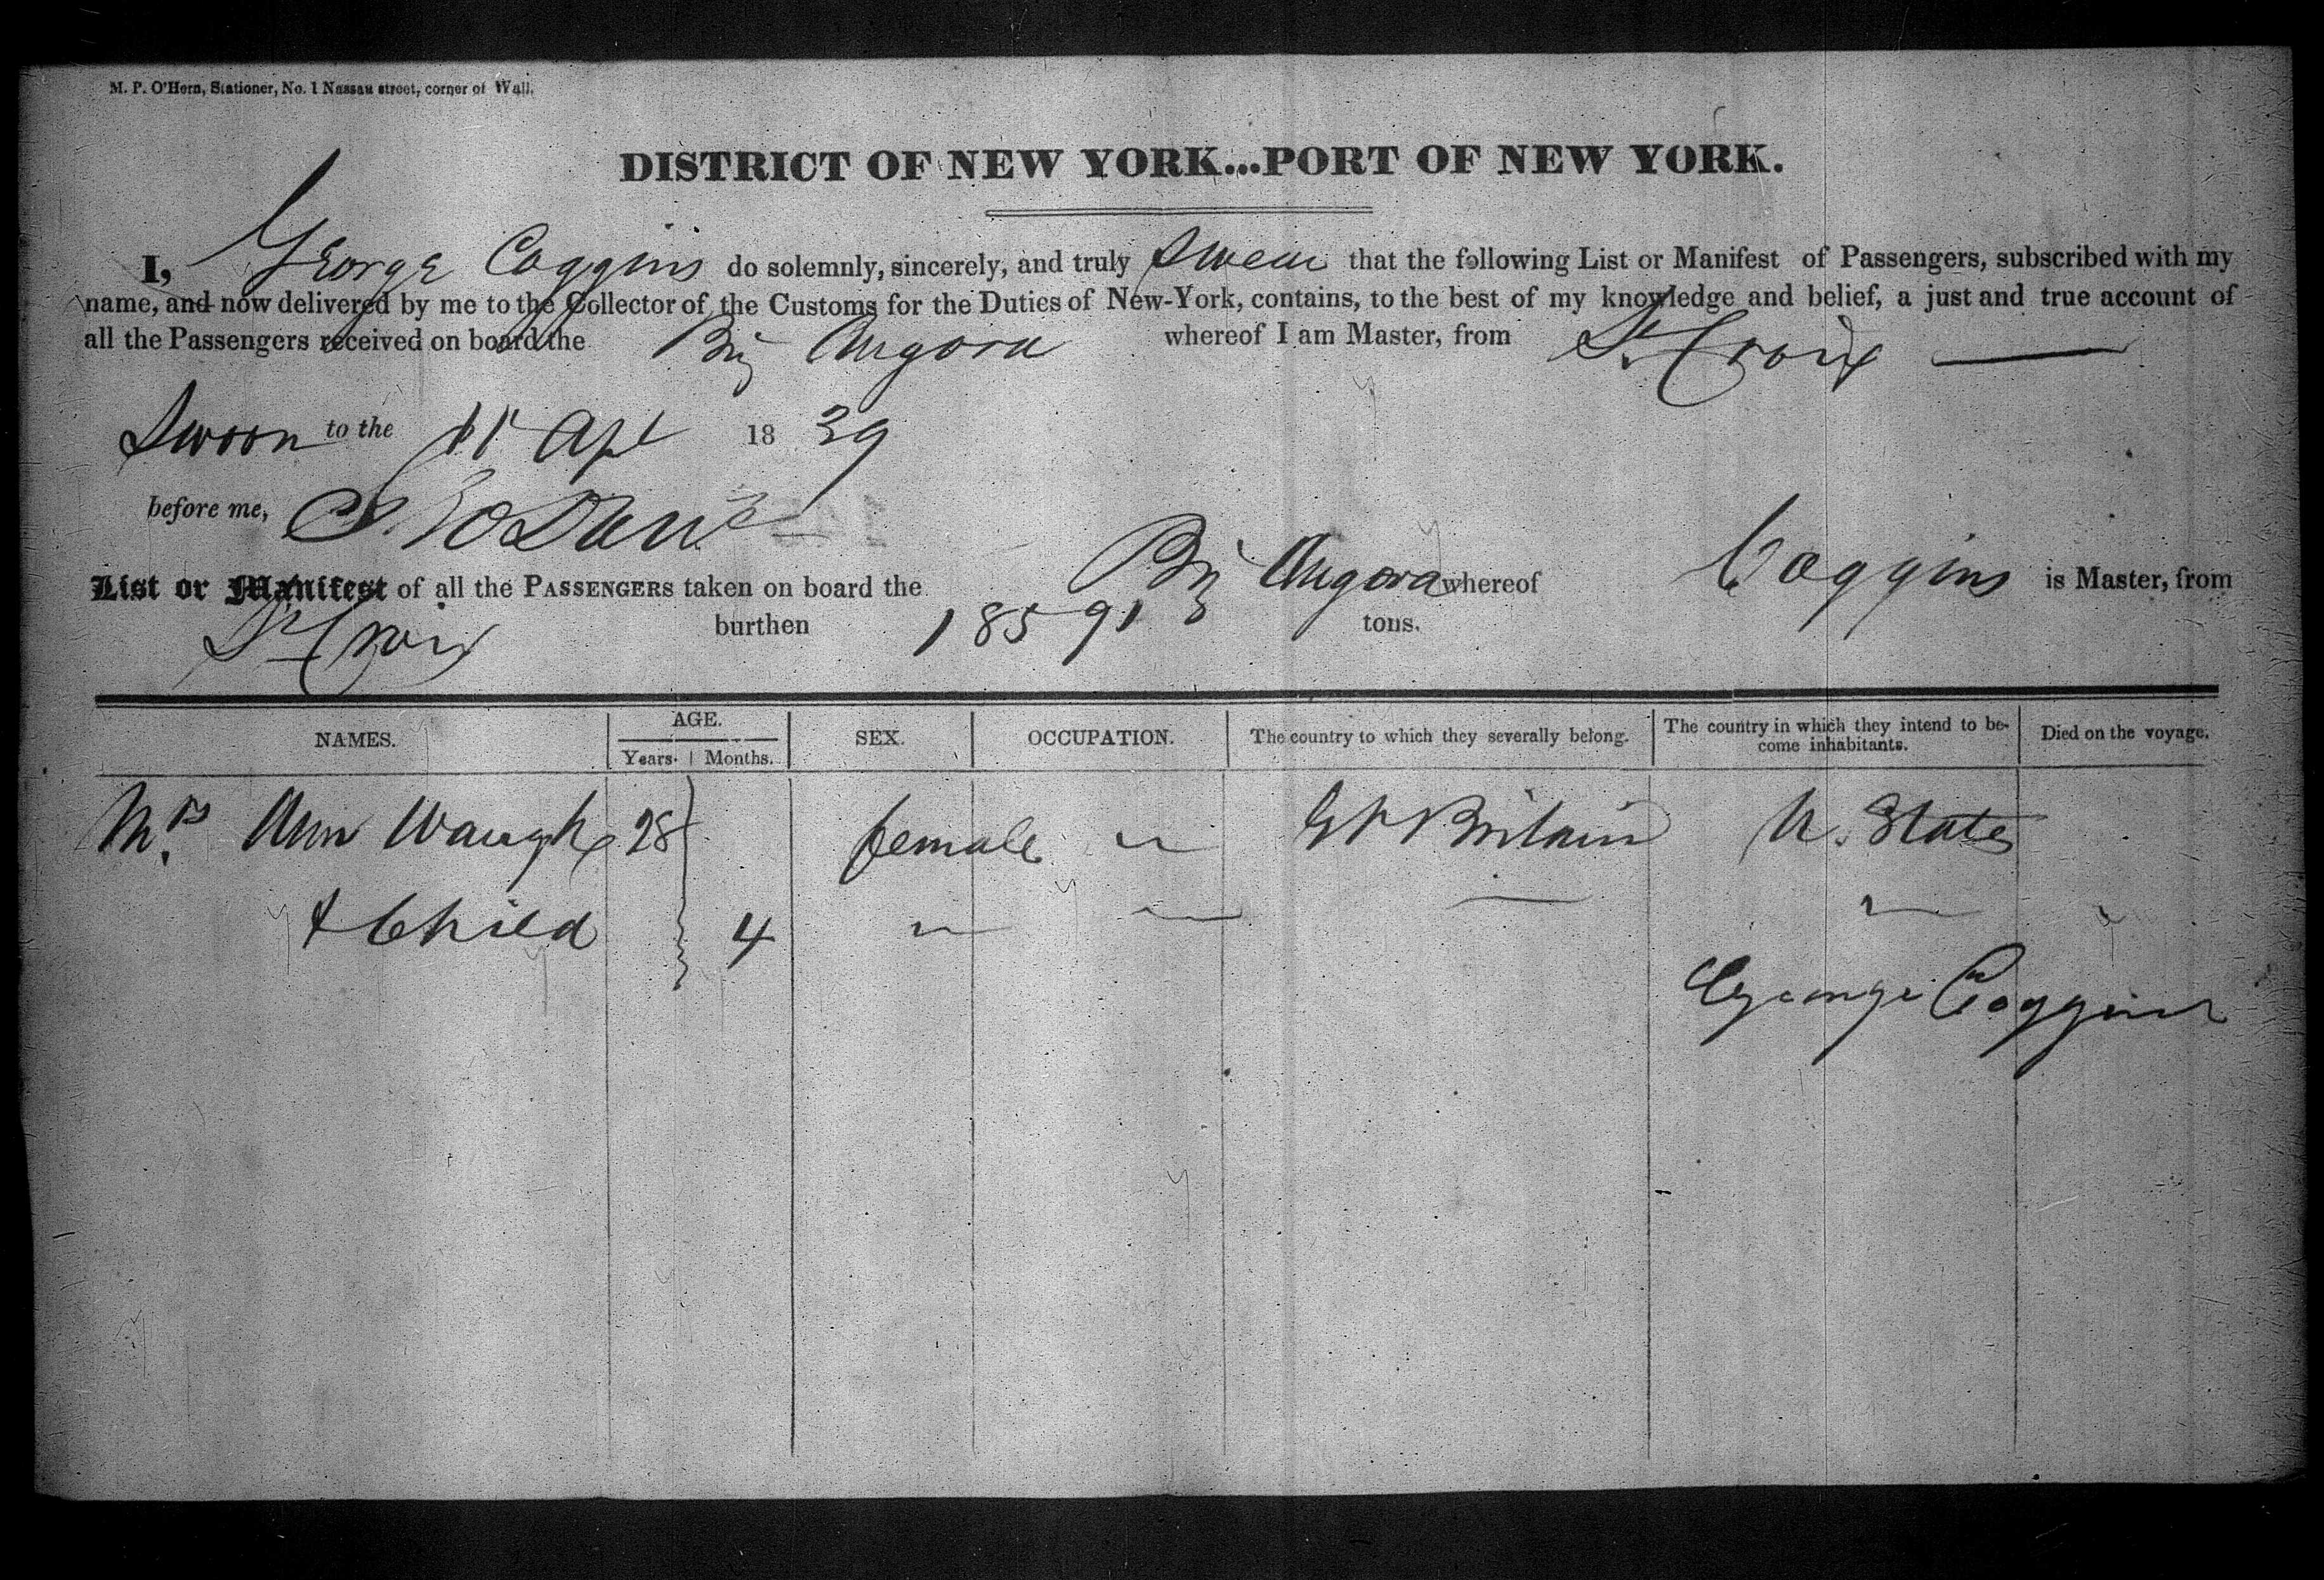 M. P. O'Hern, Stationer, No. 1 Nassau street, corner of Wall.
DISTRICT OF NEW YORK...PORT OF NEW YORK.
I, George Coggins do solemnly, sincerely, and truly swear that the following List or Manifest of Passengers, subscribed with my
name, and now delivered by me to the Collector of the Customs for the Duties of New-York, contains, to the best of my knowledge and belief, a just and true account of
all the Passengers received on board the Brig Angora whereof I am Master, from St Croix
Sworn to the 11 Apl 18 39
before me,
List or Manifest of all the PASSENGERS taken on board the Brig Angora whereof Coggins is Master, from
St Croix burthen 185 91 tons.
NAMES. AGE. SEX. OCCUPATION. The country to which they severally belong. The country in which they intend to be-come inhabitants. Died on the voyage.
Years. Months.
Mrs Ann Waugh 28 female " Gt Britain U. States
& Child 4 " " "
George Coggins